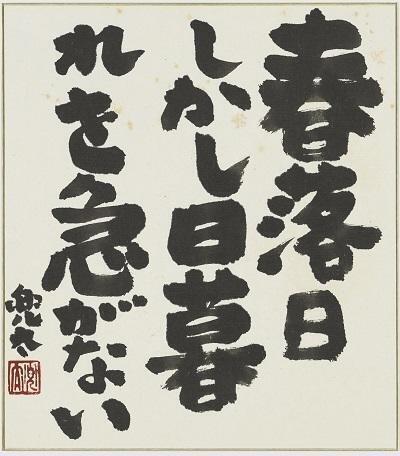 春落日
しかし日暮
れを急がない
兜太